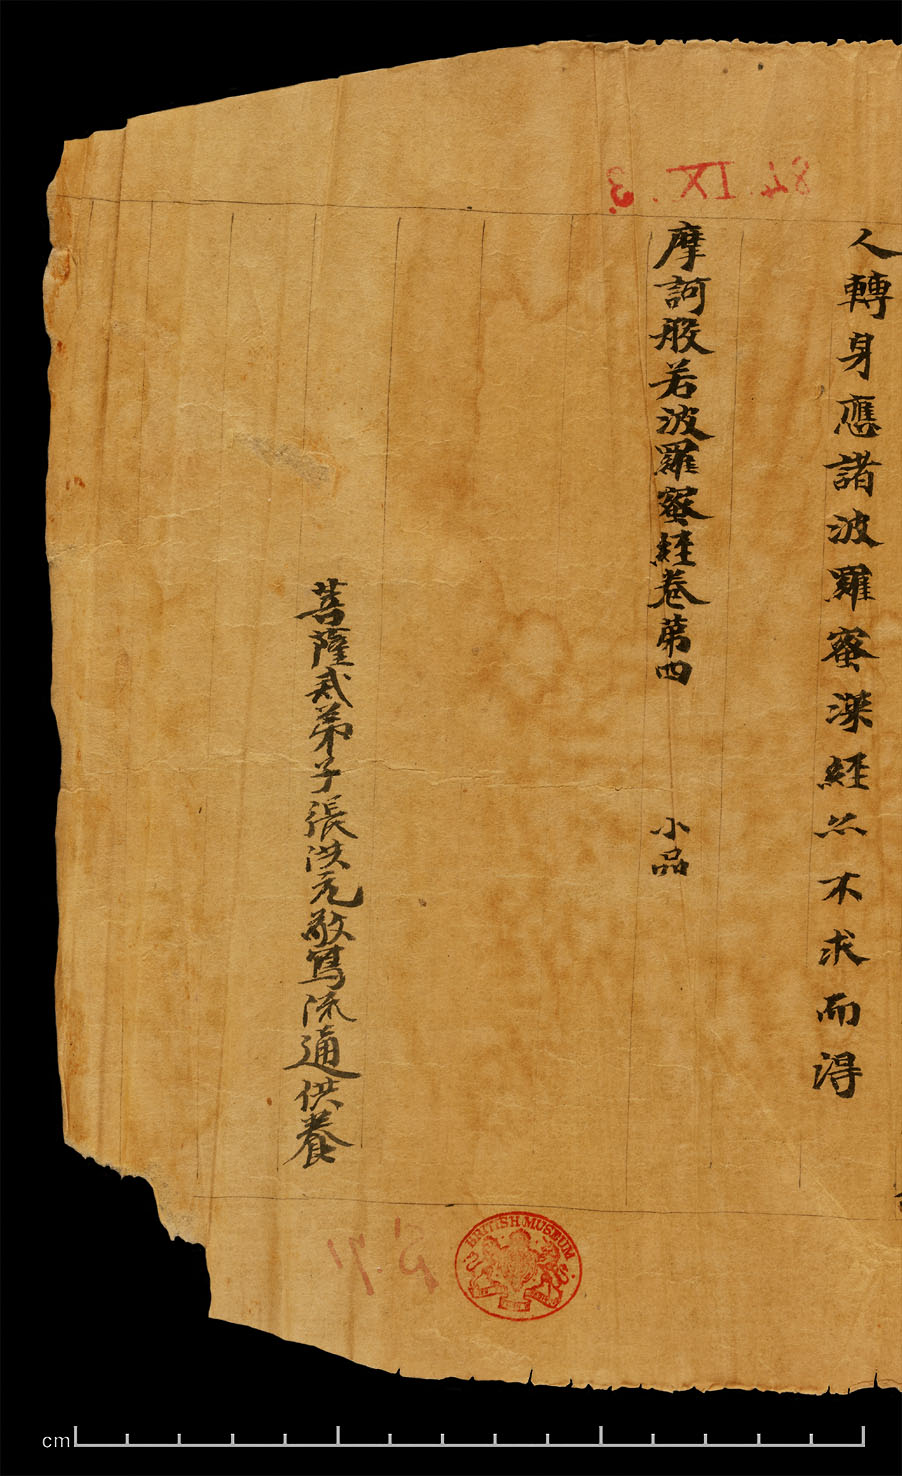 人轉身應諸波羅蜜深經亦不求而得
摩訶般若波羅蜜經卷第四 小品
菩薩戒弟子張洪元敬寫流通供養
84.IX.3.
S 71
BRITISH MUSEUM
cm